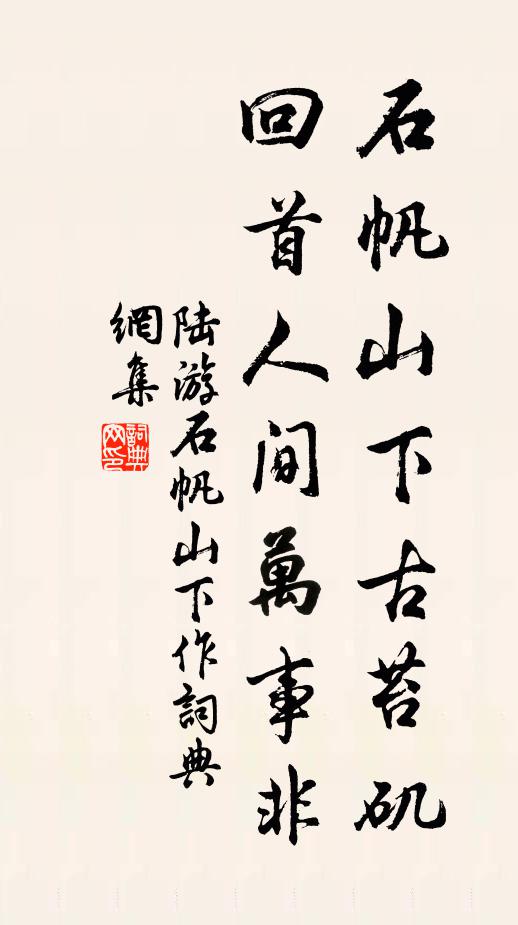 石帆山下古苔矶
回首人间萬事非
陆游石帆山下作詞典
網集
詞典
网印